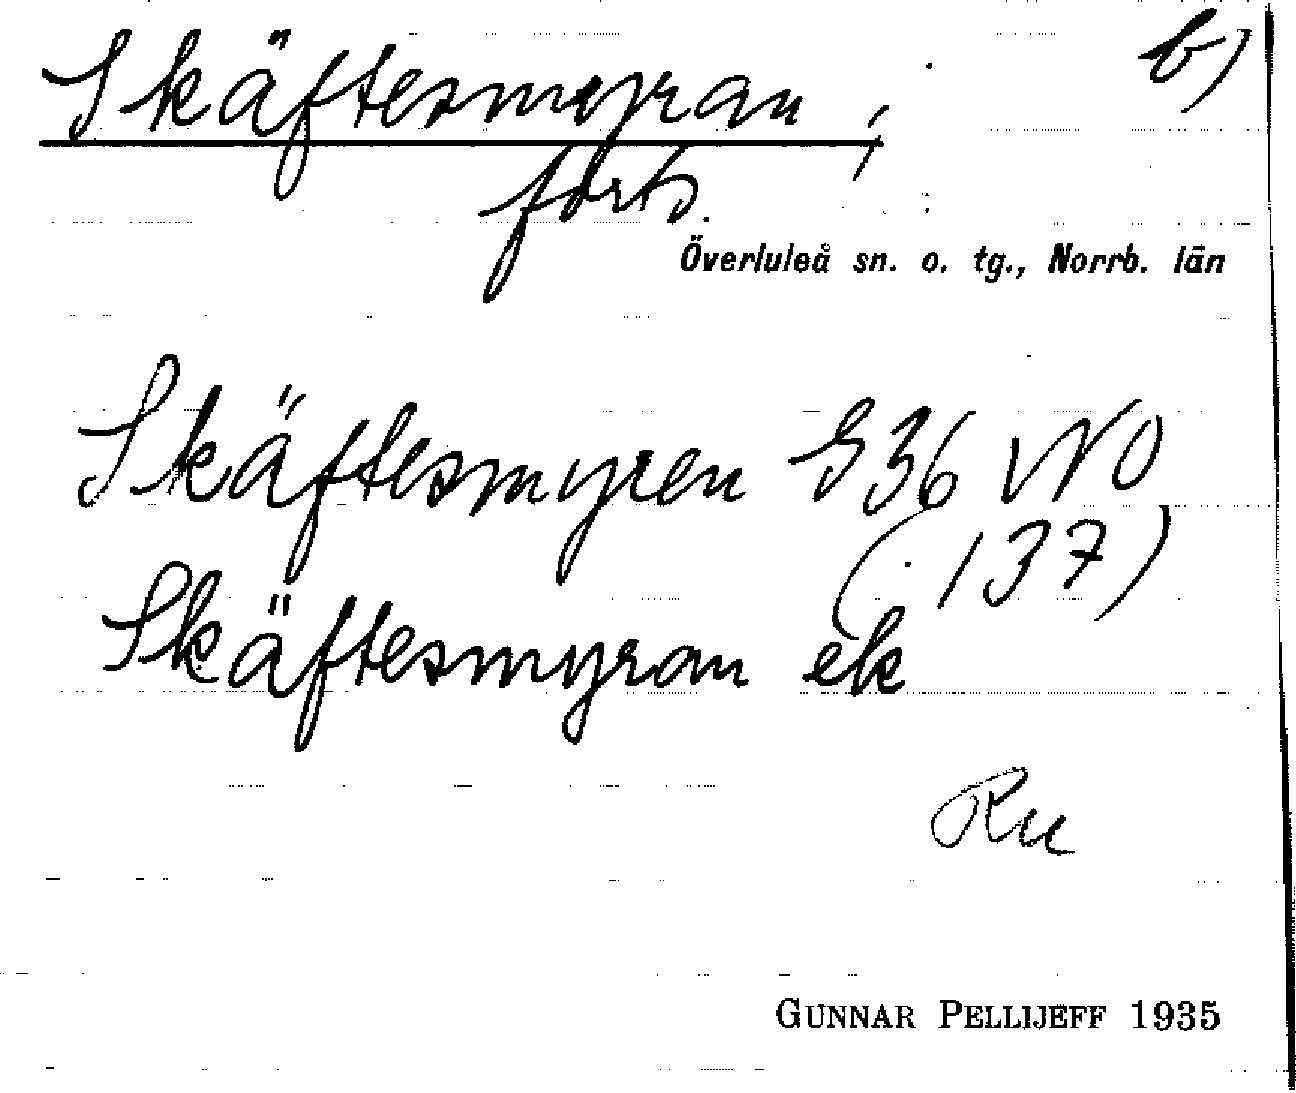 Skäftesmyran, b)
forts.
Överluleå sn. o. tg., Norrb. län
Skäftesmyren G36 VNO
(137)
Skäftesmyran ek
Ru
GUNNAR PELLIJEFF 1935